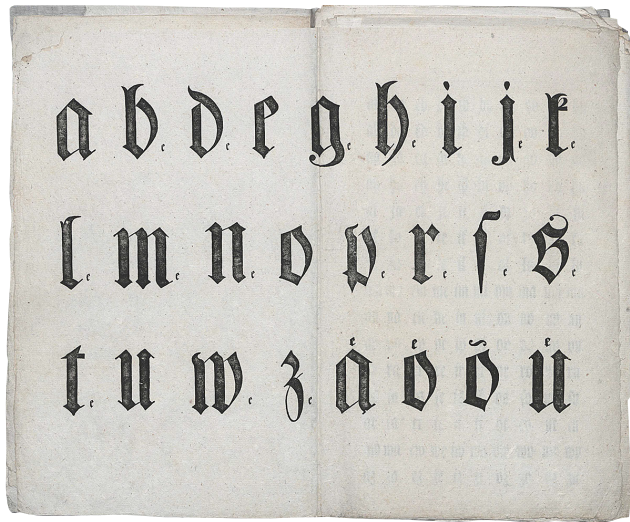 a b. d. e g. h. i j. k.
l. m. n. o p. r. ſ. s.
t. u w. z. aͤ oͤ õ uͤ